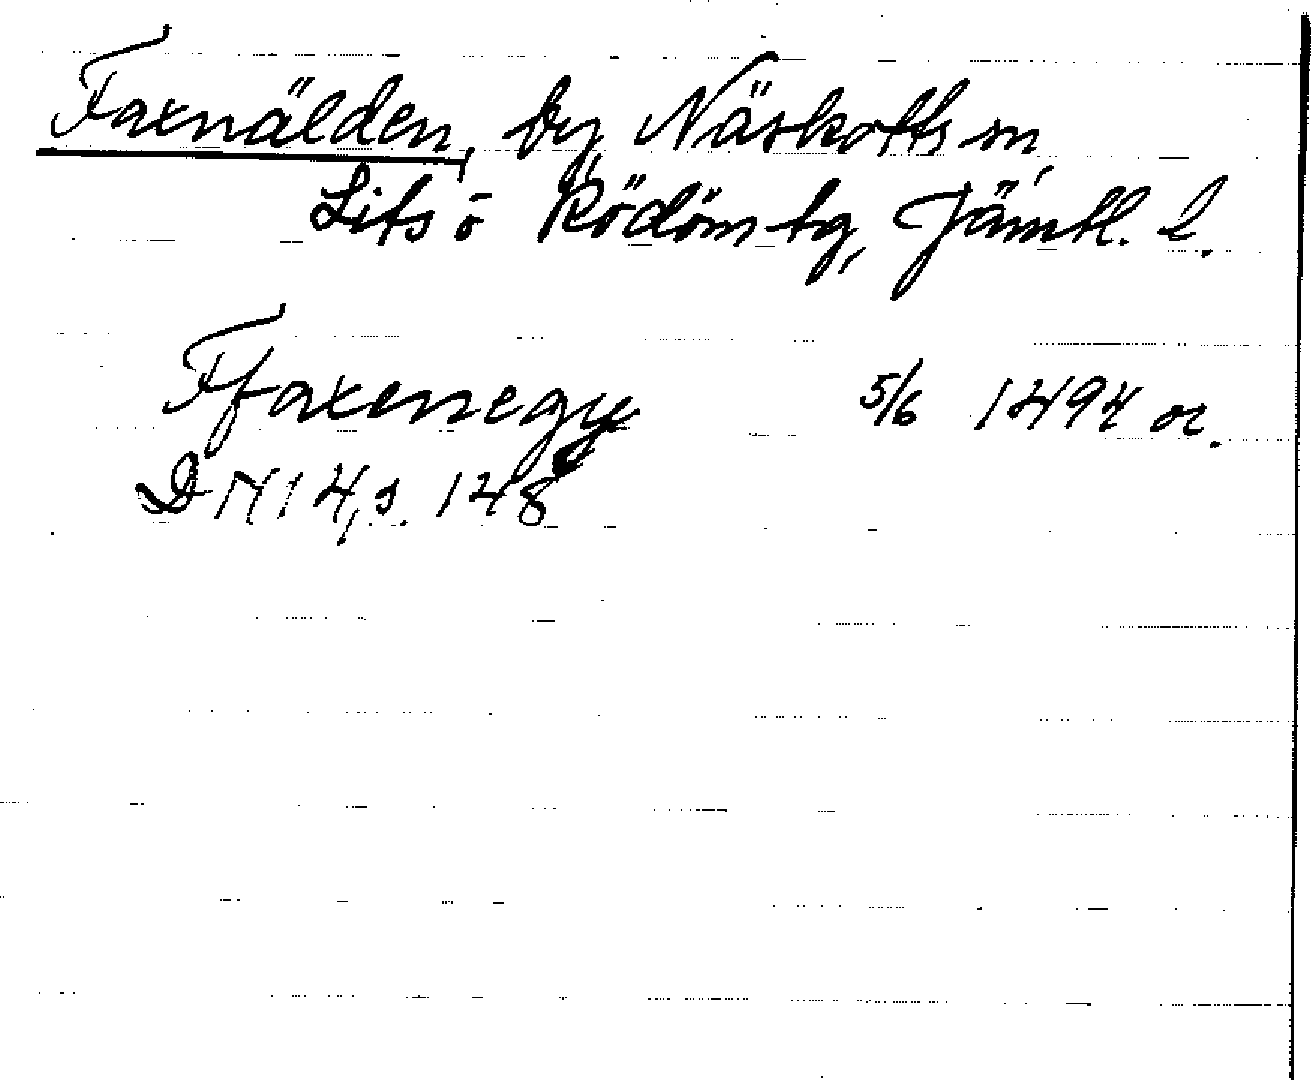 Faxnälden, by, Näskotts sn,
Lits ō Rödöns tg, Jämtl. l.
Ffaxenegye 5/6 1494 or.
DN 14, s. 148